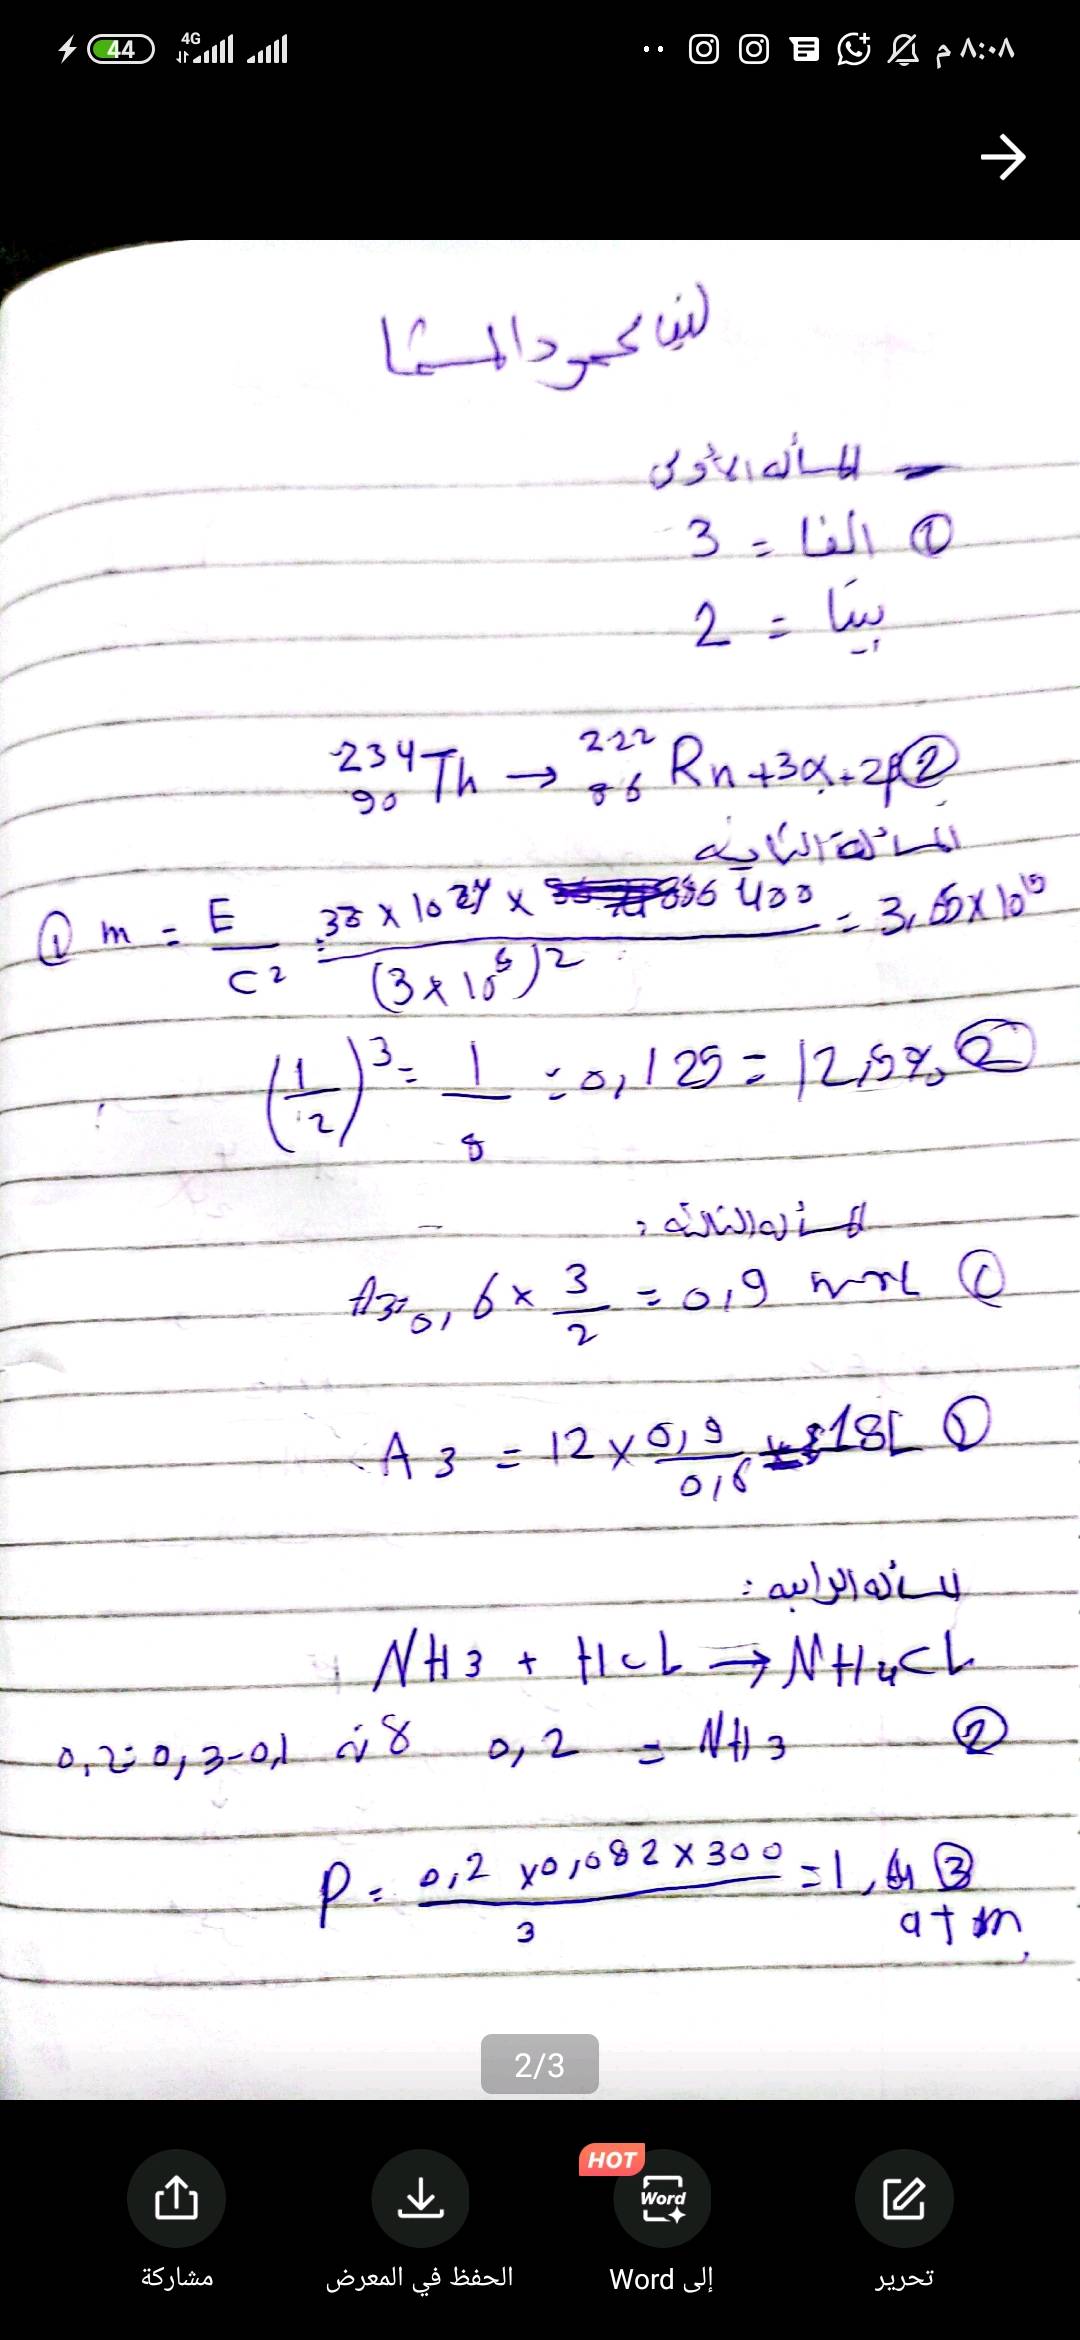 44 4G ٨:٠٨ م
لينا محمود المشا
المسألة الأولى
① الفا = 3
بيتا = 2
234 90 Th → 222 86 Rn + 3α + 2β ②
المسألة الثانية
① m = E / c² = 38 × 10²⁷ × 86400 / (3 × 10⁸)² = 3,65 × 10¹⁵
(1/2)³ = 1/8 = 0,125 = 12,5% ②
المسألة الثالثة :
A3 = 0,6 × 3/2 = 0,9 mol ①
A3 = 12 × 0,9/0,6 = 18L
المسألة الرابعة :
NH3 + HCl → NH4Cl
② NH3 = 0,2 0,2 = 0,3 - 0,1
P = 0,2 × 0,082 × 300 / 3 = 1,64 ③
atm
2/3
HOT
Word
تحرير
إلى Word
الحفظ في المعرض
مشاركة